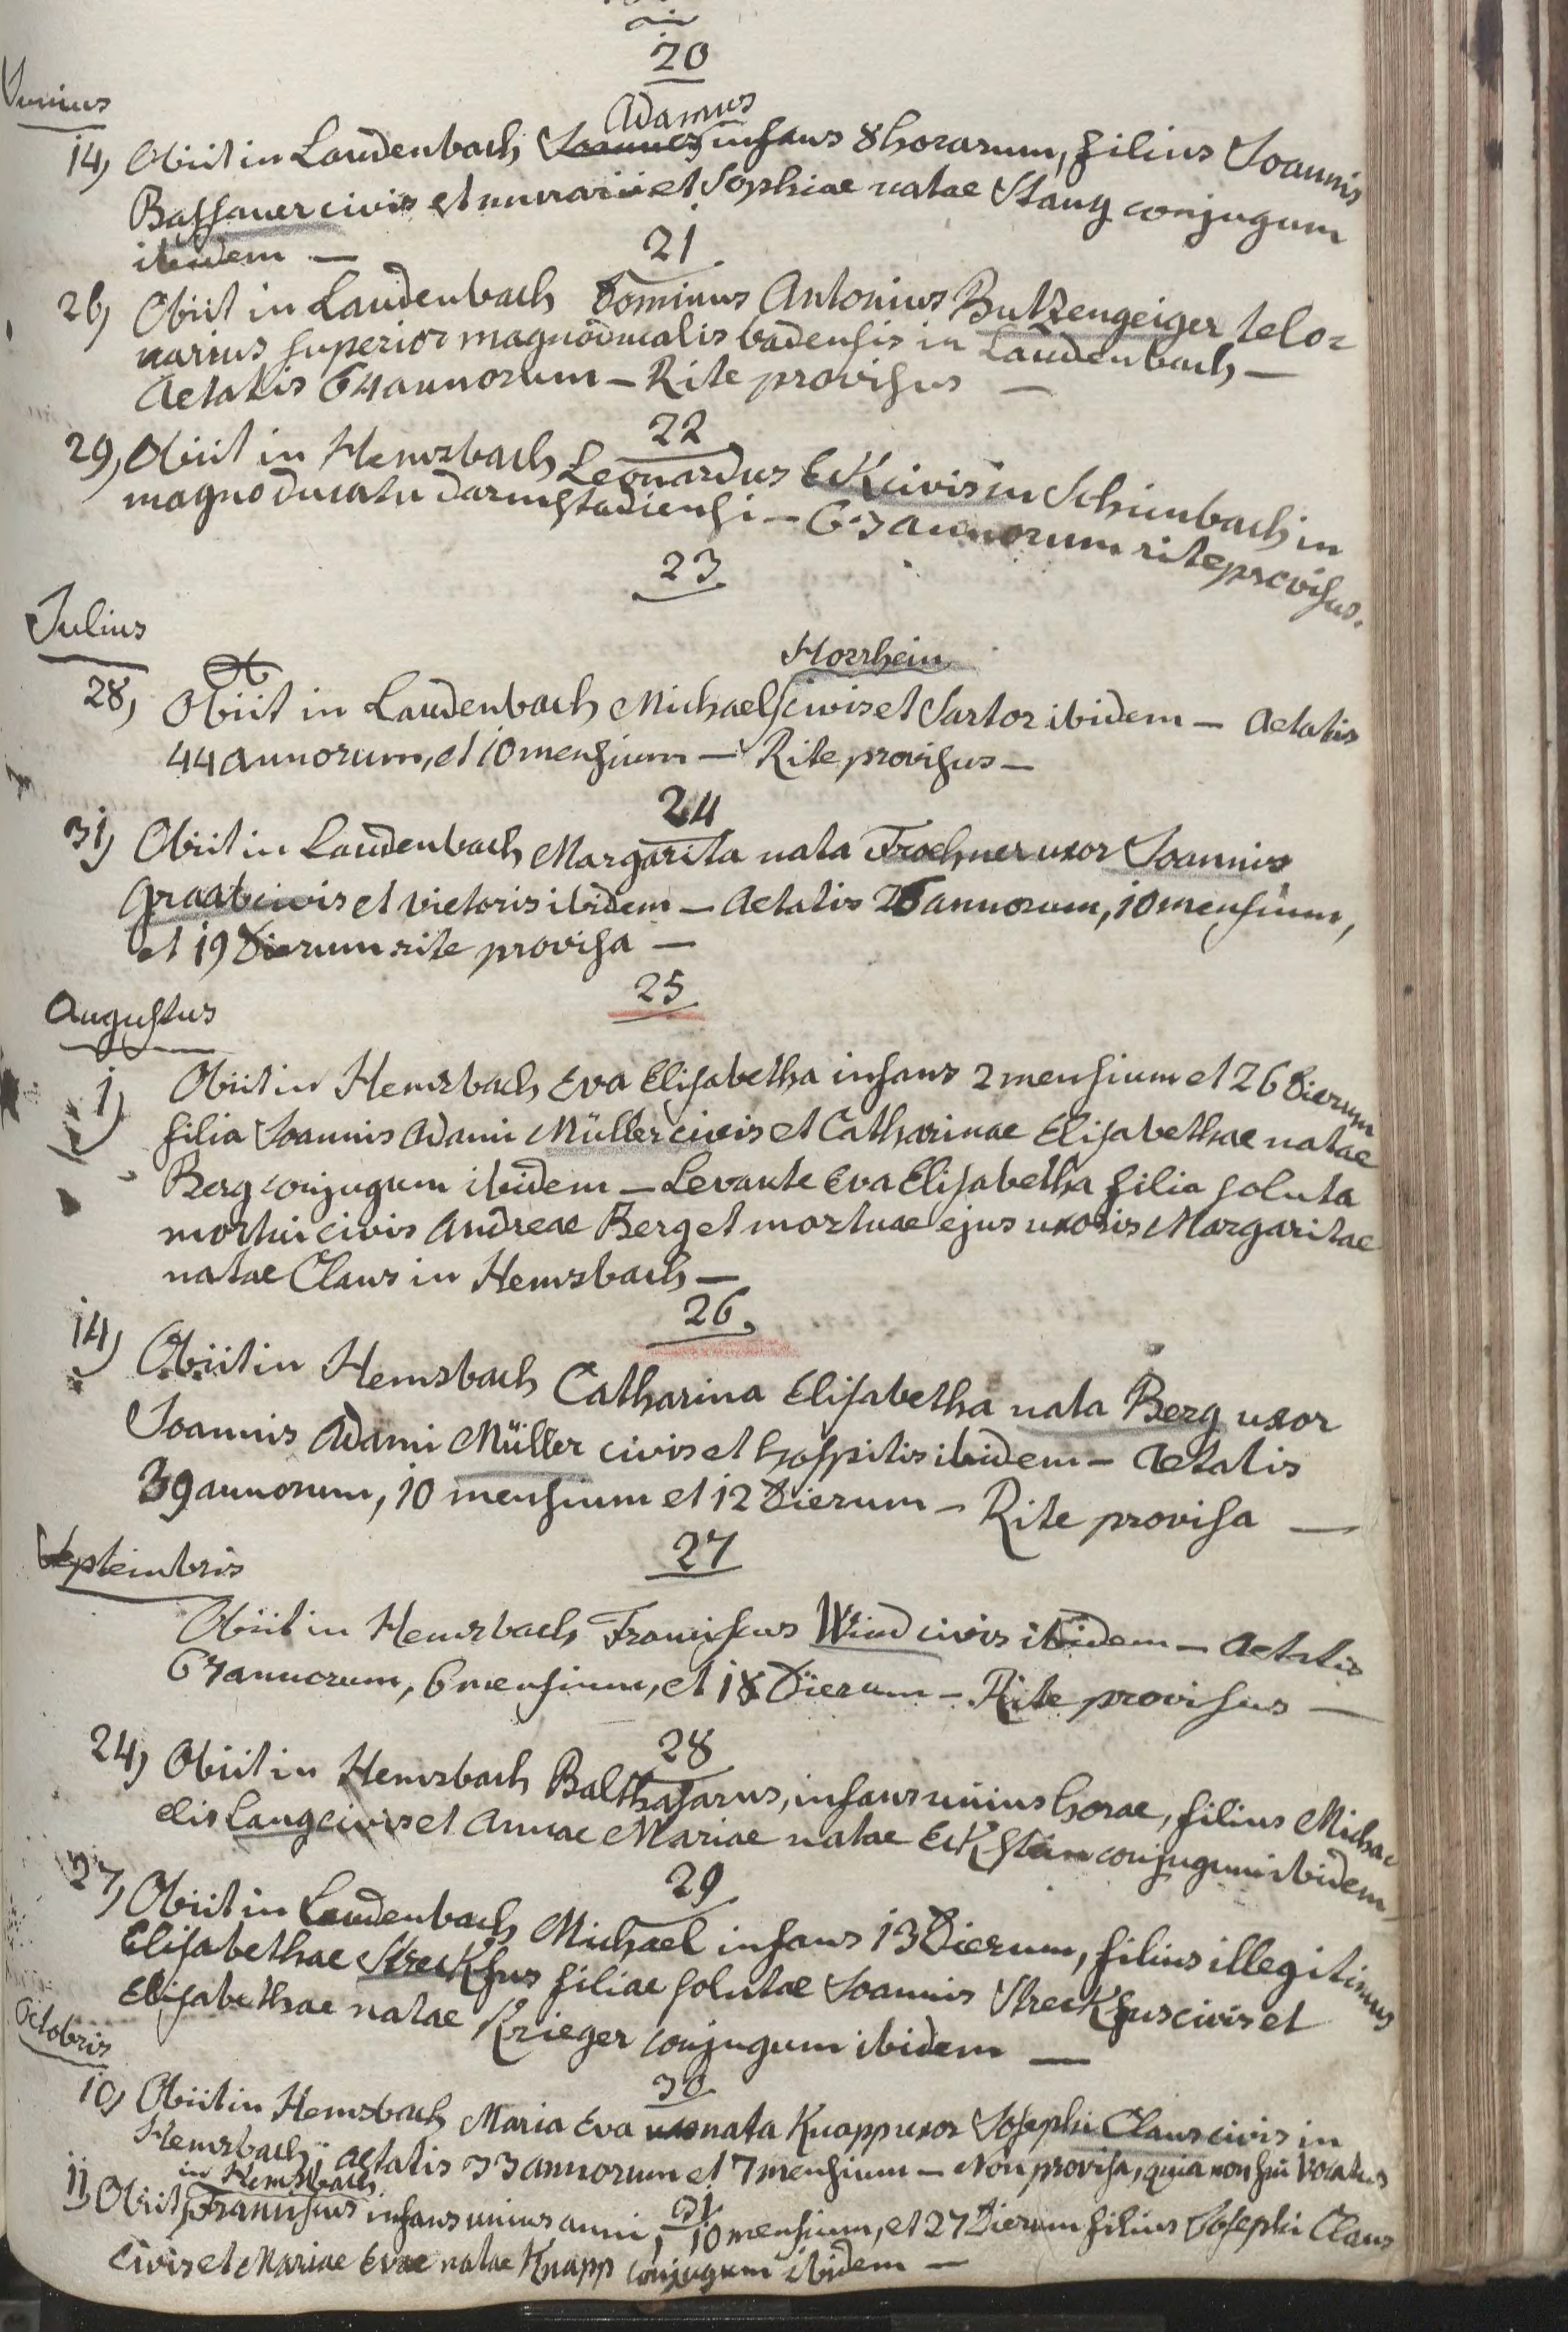 20
Junius
Adamus
14) Obiit in Laudenbach Joannes infans 8 horarum, filius Joannis
Bassauer civis et murarii et Sophiae natae Stang conjugum
ibidem —
21
26) Obiit in Laudenbach Dominus Antonius Butzengeiger telo=
narius superior magnoducalis badensis in Laudenbach —
Aetatis 64 annorum — Rite provisus —
22
29) Obiit in Hemsbach Leonardus Eck civis in Schimbach in
magnoducatu darmstadiensi — 63 annorum rite provisus.
23
Julius
Horrhein
28) Obiit in Laudenbach Michael civis et Sartor ibidem — Aetatis
44 annorum, et 10 mensium — Rite provisus —
24
31) Obiit in Laudenbach Margarita nata Froehner uxor Joannis
Graab civis et vietoris ibidem — Aetatis 26 annorum, 10 mensium,
et 19 Dierum rite provisa —
25
Augustus
1) Obiit in Hemsbach Eva Elisabetha infans 2 mensium et 26 Dierum
filia Joannis Adami Müller civis et Catharinae Elisabethae natae
Berg conjugum ibidem — Levante Eva Elisabetha filia soluta
mortui civis Andreae Berg et mortuae ejus uxoris Margaritae
natae Claus in Hemsbach —
26.
14) Obiit in Hemsbach Catharina Elisabetha nata Berg uxor
Joannis Adami Müller civis et hospitis ibidem — Aetatis
39 annorum, 10 mensium et 12 Dierum — Rite provisa —
27
Septembris
Obiit in Hemsbach Franciscus Wind civis ibidem — Aetatis
67 annorum, 6 mensium, et 18 Dierum — Rite provisus —
28
24) Obiit in Hemsbach Balthasarus, infans unius horae, filius Micha=
elis Lang civis et Annae Mariae natae Eckstein conjugum ibidem
29
27) Obiit in Laudenbach Michael infans 13 Dierum, filius illegitimus
Elisabethae Streckfus filiae solutae Joannis Streckfus civis et
Elisabethae natae Krieger conjugum ibidem —
Octobris
30
10) Obiit in Hemsbach Maria Eva nata Knapp uxor Josephi Claus civis in
Hemsbach, aetatis 33 annorum et 7 mensium — Non provisa, quia non fui vocatus
in Hemsbach
31
11) Obiit Franciscus infans unius anni, 10 mensium, et 27 Dierum filius Josephi Claus
civis et Mariae Evae natae Knapp conjugum ibidem —